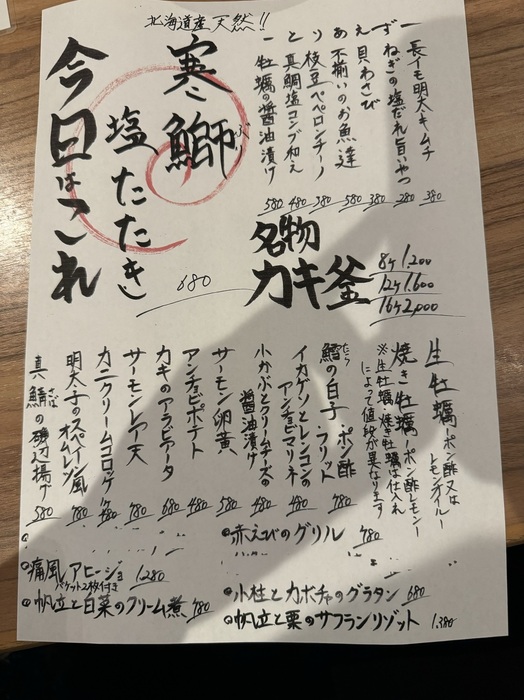 一 長イモ明太キムチ 380
ず ねぎの塩だれ旨いやつ 280
え 貝わさび 380
あ 不揃いのお魚達 580
り 枝豆ペペロンチーノ 380
と 真鯛塩コンブ和え 480
一 牡蠣の醤油漬け 580
北海道産天然!!
寒鰤 ぶり
塩たたき
680
今日はこれ
名物
カキ釜
8ケ 1,200
12ケ 1,600
16ケ 2,000
生牡蠣 -ポン酢又は
レモンオイル-
焼き牡蠣 -ポン酢レモン-
※生牡蠣・焼き牡蠣は仕入れ
によって値段が異なります
鱈の白子フリット ポン酢 780
たら
イカゲソとレンコンの
アンチョビマリネ 480
小かぶとクリームチーズの
醤油漬け 480
サーモン卵黄 580
アンチョビポテト 480
カキのアラビアータ 680
サーモンレア天 780
カニクリームコロッケ 480
明太子のスペイン風
オムレツ 780
真鯖の磯辺揚げ 580
さば
赤えびのグリル 780
痛風アヒージョ 1,280
バケット2枚付き
帆立と白菜のクリーム煮 780
小柱とカボチャのグラタン 680
帆立と栗のサフランリゾット 1,380